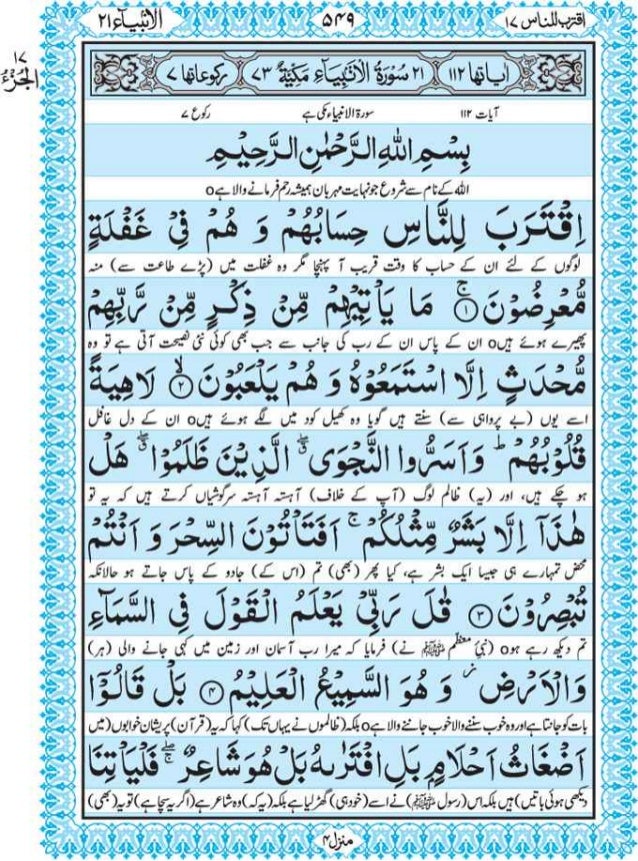 اقترب للناس ١٧
٥٤٩
الانبیآء ٢١
١٧
الجزء
اٰیاتھا ١١٢
٢١ سُوْرَةُ الْاَنْۢبِیَآءِ مَكِّیَّةٌ ٧٣
رکوعاتھا ٧
آیات ١١٢ سورۃ الانبیاء مکی ہے رکوع ٧
بِسْمِ اللّٰهِ الرَّحْمٰنِ الرَّحِیْمِ
اللہ کے نام سے شروع جو نہایت مہربان ہمیشہ رحم فرمانے والا ہے o
اِقْتَرَبَ لِلنَّاسِ حِسَابُهُمْ وَ هُمْ فِیْ غَفْلَةٍ
لوگوں کے لئے ان کے حساب کا وقت قریب آ پہنچا مگر وہ غفلت میں (پڑے طاعت سے) منہ
مُّعْرِضُوْنَ ۚ﴿١﴾ مَا یَاْتِیْهِمْ مِّنْ ذِكْرٍ مِّنْ رَّبِّهِمْ
پھیرے ہوئے ہیں o ان کے پاس ان کے رب کی جانب سے جب بھی کوئی نئی نصیحت آتی ہے تو وہ
مُّحْدَثٍ اِلَّا اسْتَمَعُوْهُ وَ هُمْ یَلْعَبُوْنَ ۙ﴿٢﴾ لَاهِیَةً
اسے یوں (بے پرواہی سے) سنتے ہیں گویا وہ کھیل کود میں لگے ہوئے ہیں o ان کے دل غافل
قُلُوْبُهُمْ ؕ وَ اَسَرُّوا النَّجْوَی ۖۗ الَّذِیْنَ ظَلَمُوْا ۖۗ هَلْ
ہو چکے ہیں، اور (یہ) ظالم لوگ (آپ کے خلاف) آہستہ آہستہ سرگوشیاں کرتے ہیں کہ یہ تو
هٰذَاۤ اِلَّا بَشَرٌ مِّثْلُكُمْ ۚ اَفَتَاْتُوْنَ السِّحْرَ وَ اَنْتُمْ
محض تمہارے ہی جیسا ایک بشر ہے، کیا پھر (بھی) تم (اس کے) جادو کے پاس جاتے ہو حالانکہ
تُبْصِرُوْنَ ﴿٣﴾ قٰلَ رَبِّیْ یَعْلَمُ الْقَوْلَ فِی السَّمَآءِ
تم دیکھ رہے ہو o (نبیِ معظم ﷺ نے) فرمایا کہ میرا رب آسمان اور زمین میں کہی جانے والی (ہر)
وَالْاَرْضِ ۫ وَ هُوَ السَّمِیْعُ الْعَلِیْمُ ﴿٤﴾ بَلْ قَالُوْۤا
بات کو جانتا ہے اور وہ خوب سننے والا خوب جاننے والا ہے o بلکہ (ظالموں نے یہاں تک) کہا کہ یہ (قرآن) پریشان خوابوں (میں
اَضْغَاثُ اَحْلَامٍۭ بَلِ افْتَرٰىهُ بَلْ هُوَ شَاعِرٌ ۖۚ فَلْیَاْتِنَا
دیکھی ہوئی باتیں) ہیں بلکہ اس (رسول ﷺ) نے اسے (خود ہی) گھڑ لیا ہے بلکہ (یہ کہ) وہ شاعر ہے (اگر یہ سچا ہے) تو یہ (بھی)
منزل ٤